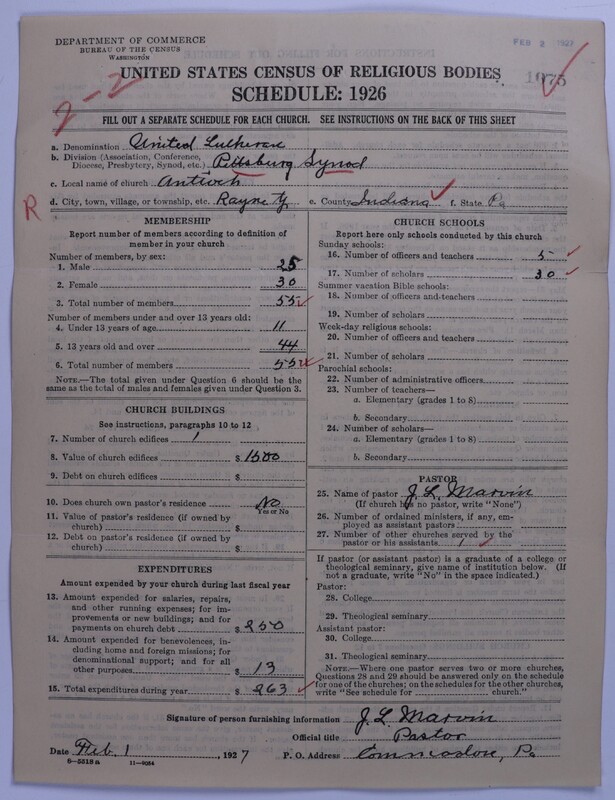 DEPARTMENT OF COMMERCE
BUREAU OF THE CENSUS
WASHINGTON
FEB 2 1927
1075
UNITED STATES CENSUS OF RELIGIOUS BODIES
SCHEDULE: 1926
2-2
FILL OUT A SEPARATE SCHEDULE FOR EACH CHURCH. SEE INSTRUCTIONS ON THE BACK OF THIS SHEET
a. Denomination United Lutheran
b. Division (Association, Conference, Diocese, Presbytery, Synod, etc.) Pittsburg Synod
c. Local name of church Antioch
R
d. City, town, village, or township, etc. Rayne e. County Indiana f. State Pa
MEMBERSHIP
Report number of members according to definition of
member in your church
Number of members, by sex:
1. Male 25
2. Female 30
3. Total number of members 55
Number of members under and over 13 years old:
4. Under 13 years of age 11
5. 13 years old and over 44
6. Total number of members 55
NOTE.—The total given under Question 6 should be
the same as the total of males and females given under Question 3.
CHURCH BUILDINGS
See instructions, paragraphs 10 to 12
7. Number of church edifices 1
8. Value of church edifices $ 1500
9. Debt on church edifices $
10. Does church own pastor's residence? No
Yes or No
11. Value of pastor's residence (if owned by
church) $
12. Debt on pastor's residence (if owned by
church) $
EXPENDITURES
Amount expended by your church during last fiscal year
13. Amount expended for salaries, repairs,
and other running expenses; for im-
provements or new buildings; and for
payments on church debt $ 250
14. Amount expended for benevolences, in-
cluding home and foreign missions; for
denominational support; and for all
other purposes $ 13
15. Total expenditures during year $ 263
CHURCH SCHOOLS
Report here only schools conducted by this church
Sunday schools:
16. Number of officers and teachers 5
17. Number of scholars 30
Summer vacation Bible schools:
18. Number of officers and teachers
19. Number of scholars
Week-day religious schools:
20. Number of officers and teachers
21. Number of scholars
Parochial schools:
22. Number of administrative officers
23. Number of teachers—
a. Elementary (grades 1 to 8)
b. Secondary
24. Number of scholars—
a. Elementary (grades 1 to 8)
b. Secondary
PASTOR
25. Name of pastor J. L. Marvin
(If church has no pastor, write "None")
26. Number of ordained ministers, if any, em-
ployed as assistant pastors
27. Number of other churches served by the
pastor or his assistants 1
If pastor (or assistant pastor) is a graduate of a college or
theological seminary, give name of institution below. (If
not a graduate, write "No" in the space indicated.)
Pastor:
28. College
29. Theological seminary
Assistant pastor:
30. College
31. Theological seminary
NOTE.—Where one pastor serves two or more churches,
Questions 28 and 29 should be answered only on the schedule
for one of the churches; on the schedules for the other churches,
write "See schedule for church."
Signature of person furnishing information J. L. Marvin
Official title Pastor
Date Feb. 1, 1927 P. O. Address Pa
6-5518a 11-9054